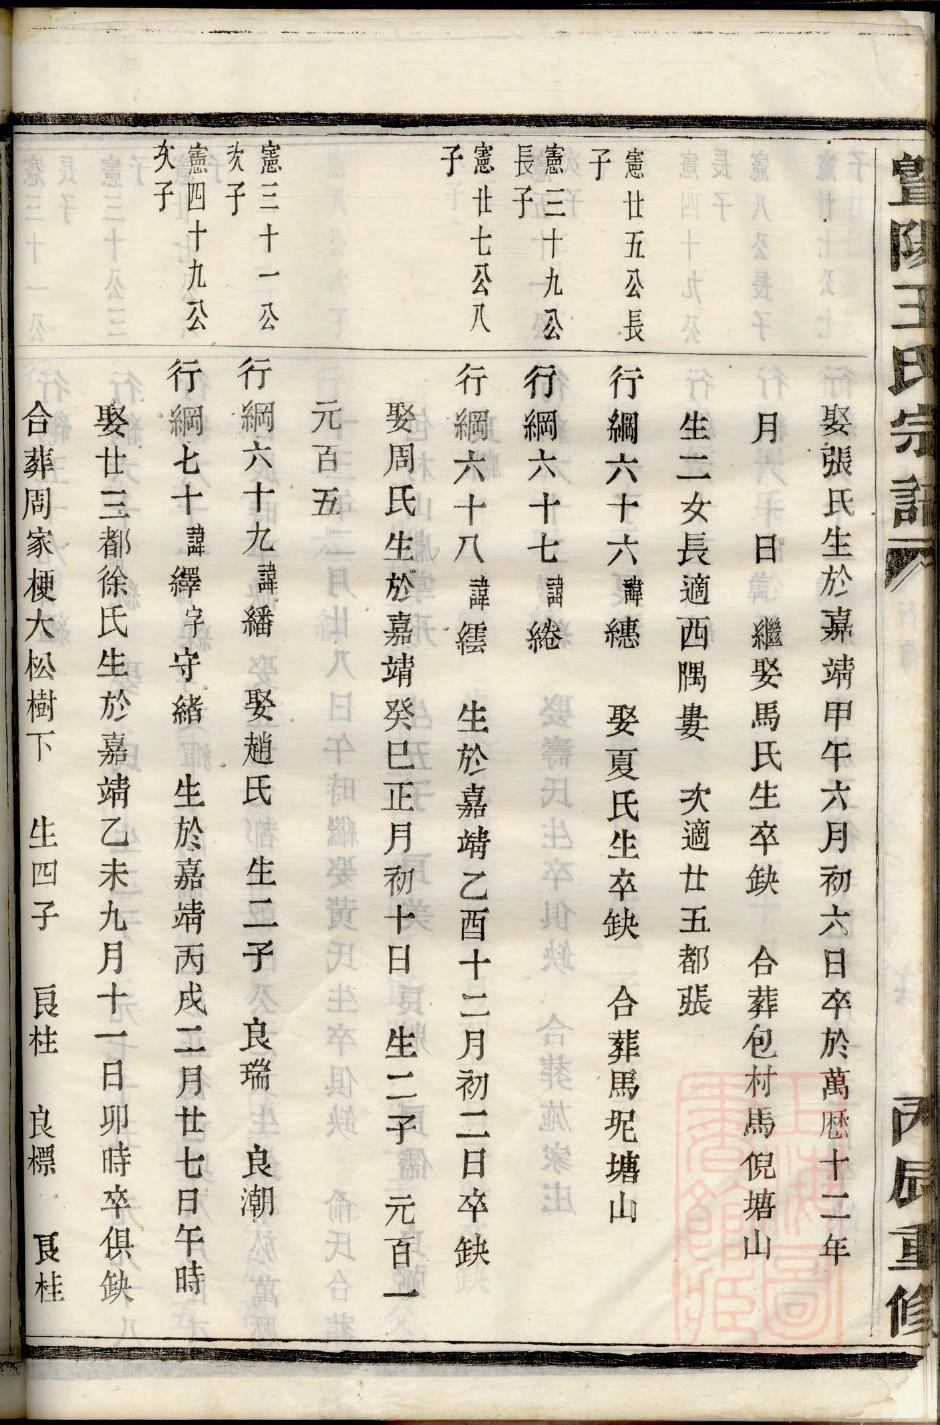 暨陽王氏宗譜
丙辰重修
娶張氏生於嘉靖甲午六月初六日卒於萬厯十二年
月　日　繼娶馬氏生卒缺　合葬包村馬倪塘山
生二女長適西隅婁　次適廿五都張
憲廿五公長子
行綱六十六諱繐　娶夏氏生卒缺　合葬馬坭塘山
憲三十九公長子
行綱六十七諱綣
憲廿七公八子
行綱六十八諱繧　生於嘉靖乙酉十二月初二日卒缺
娶周氏生於嘉靖癸巳正月初十日　生二子　元百一
元百五
憲三十一公次子
行綱六十九諱繙　娶趙氏　生二子　良瑞　良潮
憲四十九公次子
行綱七十諱繹字守緒　生於嘉靖丙戌二月廿七日午時
娶廿三都徐氏生於嘉靖乙未九月十一日卯時卒俱缺
合葬周家梗大松樹下　生四子　良柱　良標　良桂